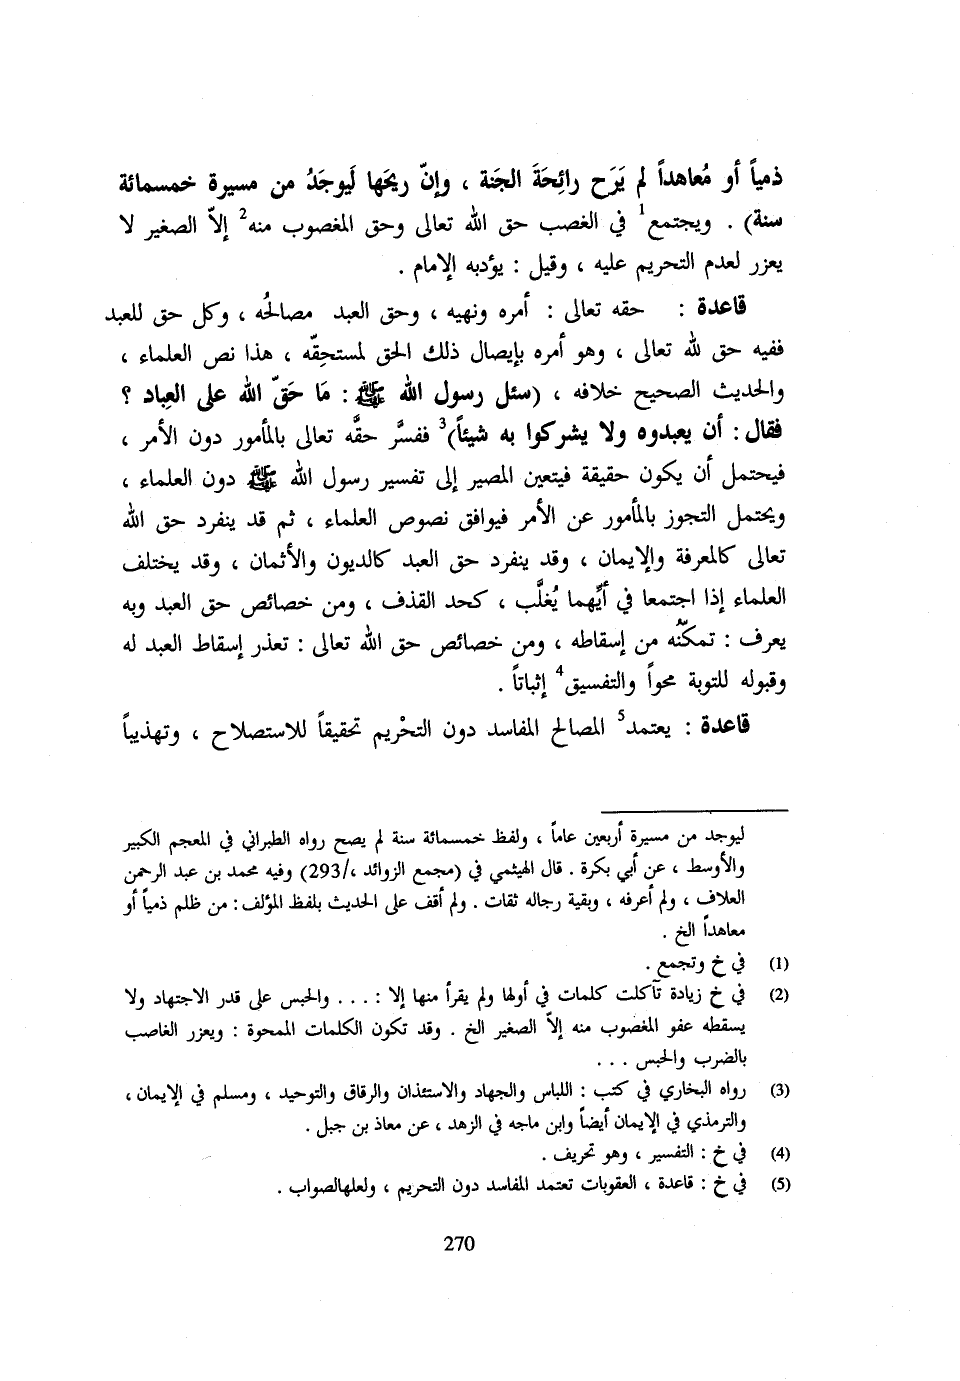 ذمياً أو مُعاهداً لم يَرَح رائِحَةَ الجَنة ، وإنّ ريحَها لَيوجَدُ من مسيرة خمسمائة
سنة) . ويجتمع1 في الغصب حق الله تعالى وحق المغصوب منه2 إلاّ الصغير لا
يعزر لعدم التحريم عليه ، وقيل : يؤدبه الإمام .
قاعدة : حقه تعالى : أمره ونهيه ، وحق العبد مصالحُه ، وكل حق للعبد
ففيه حق لله تعالى ، وهو أمره بإيصال ذلك الحق لمستحِقّه ، هذا نص العلماء ،
والحديث الصحيح خلافه ، (سئل رسول الله ﷺ : مَا حَقّ الله على العِباد ؟
فقال : أن يعبدوه ولا يشركوا به شيئاً)3 ففسَّر حقَّه تعالى بالمأمور دون الأمر ،
فيحتمل أن يكون حقيقة فيتعين المصير إلى تفسير رسول الله ﷺ دون العلماء ،
ويحتمل التجوز بالمأمور عن الأمر فيوافق نصوص العلماء ، ثم قد ينفرد حق الله
تعالى كالمعرفة والإيمان ، وقد ينفرد حق العبد كالديون والأثمان ، وقد يختلف
العلماء إذا اجتمعا في أيِّهما يُغلَّب ، كحد القذف ، ومن خصائص حق العبد وبه
يعرف : تمكنّه من إسقاطه ، ومن خصائص حق الله تعالى : تعذر إسقاط العبد له
وقبوله للتوبة محواً والتفسيق4 إثباتاً .
قاعدة : يعتمد5 المصالح المفاسد دون التحْريم تحقيقاً للاستصلاح ، وتهذيباً
ليوجد من مسيرة أربعين عاماً ، ولفظ خمسمائة سنة لم يصح رواه الطبراني في المعجم الكبير
والأوسط ، عن أبي بكرة . قال الهيثمي في (مجمع الزوائد ،/293) وفيه محمد بن عبد الرحمن
العلاف ، ولم أعرفه ، وبقية رجاله ثقات . ولم أقف على الحديث بلفظ المؤلف : من ظلم ذمياً أو
معاهداً الخ .
(1) في خ وتجمع .
(2) في خ زيادة تآكلت كلمات في أولها ولم يقرأ منها إلا : . . . والحبس على قدر الاجتهاد ولا
يسقطه عفو المغصوب منه إلاّ الصغير الخ . وقد تكون الكلمات الممحوة : ويعزر الغاصب
بالضرب والحبس . . .
(3) رواه البخاري في كتب : اللباس والجهاد والاستئذان والرقاق والتوحيد ، ومسلم في الإيمان ،
والترمذي في الإيمان أيضاً وابن ماجه في الزهد ، عن معاذ بن جبل .
(4) في خ : التفسير ، وهو تحريف .
(5) في خ : قاعدة ، العقوبات تعتمد المفاسد دون التحريم ، ولعلهالصواب .
270